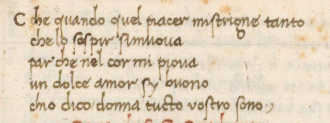 C he quando quel piacer mi strigne tanto
che lo sospir si muova
par che nel cor mi piova
un dolce amor sy buono
chio dico donna tucto vostro sono